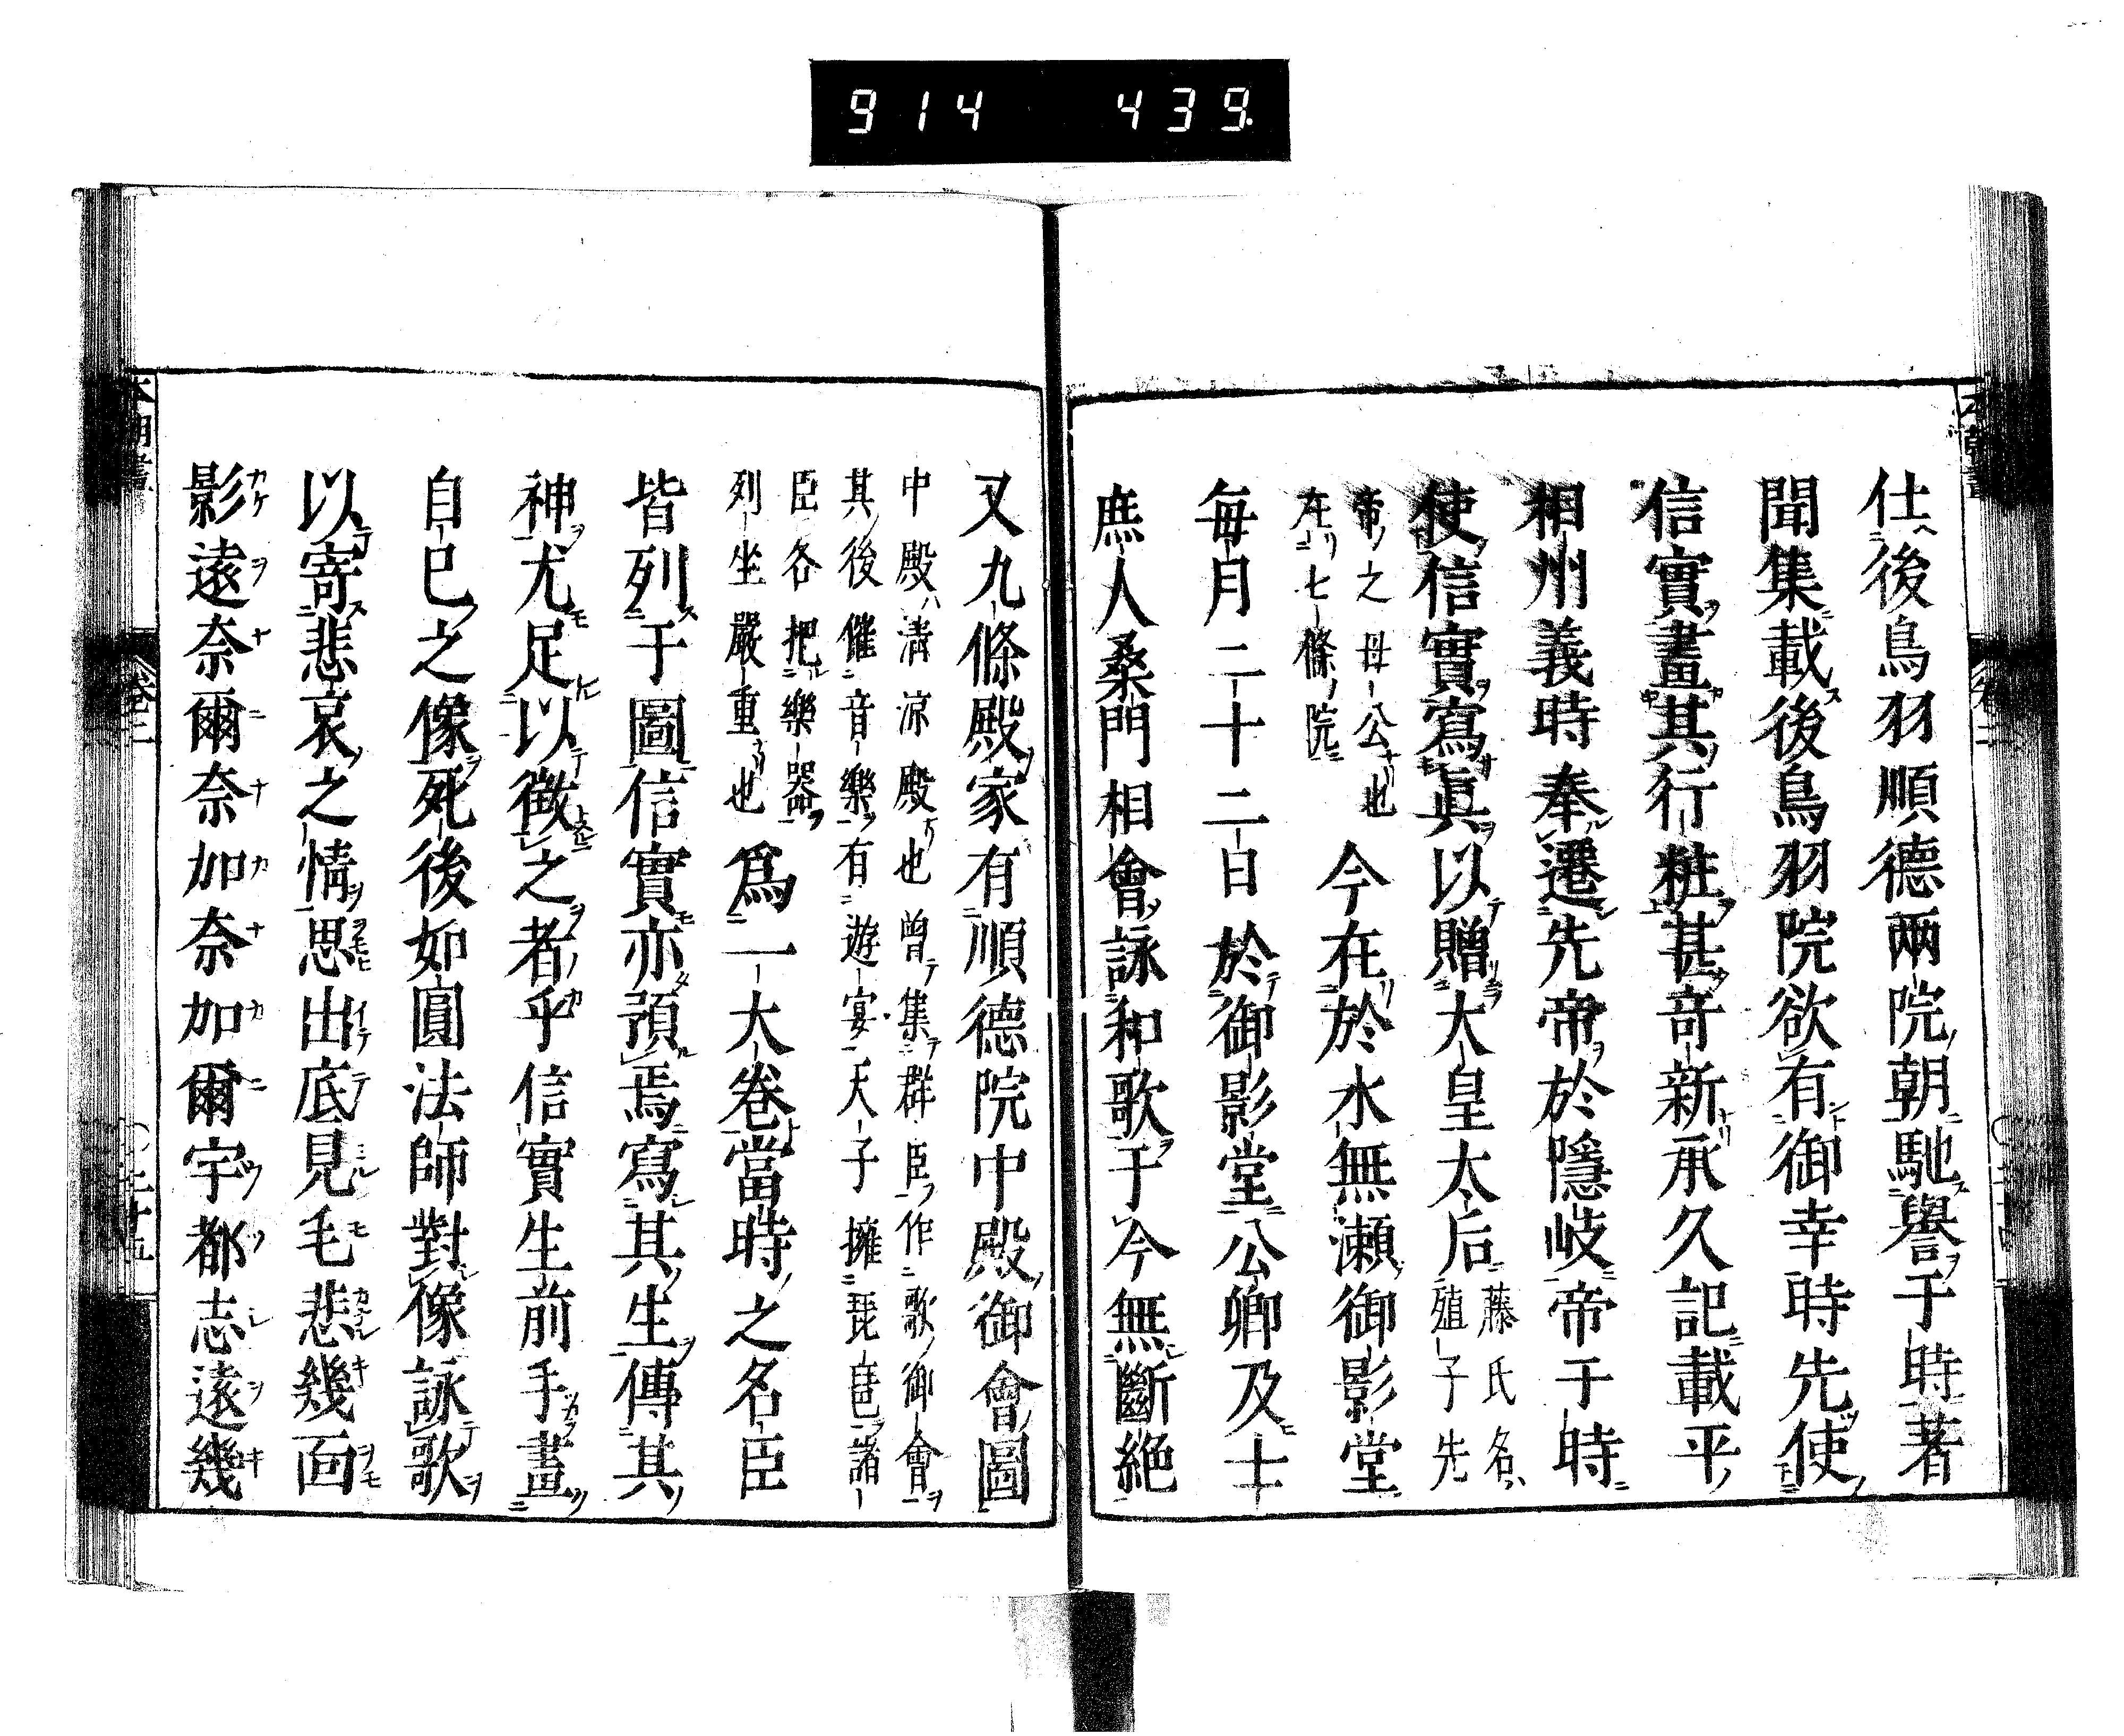 914 439.
仕後鳥羽順德兩院朝馳譽于時著
聞集載後鳥羽院欲有御幸時先使
信實畫其行粧甚奇新承久記載平
相州義時奉遷先帝於隱岐帝于時
使信實寫眞以贈大皇太后藤氏名殖子先
帝之母公也在七條院今在於水無瀬御影堂
每月二十二日於御影堂公卿及士
庶人桑門相會詠和歌于今無斷絕
又九條殿家有順德院中殿御會圖
中殿清涼殿也曾集群臣作歌御會
其後催音樂有遊宴天子擁琵琶諸
臣各把樂器
列坐嚴重也爲一大卷當時之名臣
皆列于圖信實亦預焉寫其生傳其
神尤足以徵之者乎信實生前手畫
自己之像死後如圓法師對像詠歌
以寄悲哀之情思出底見毛悲幾面
影遠奈爾奈加奈加爾宇都志遠幾